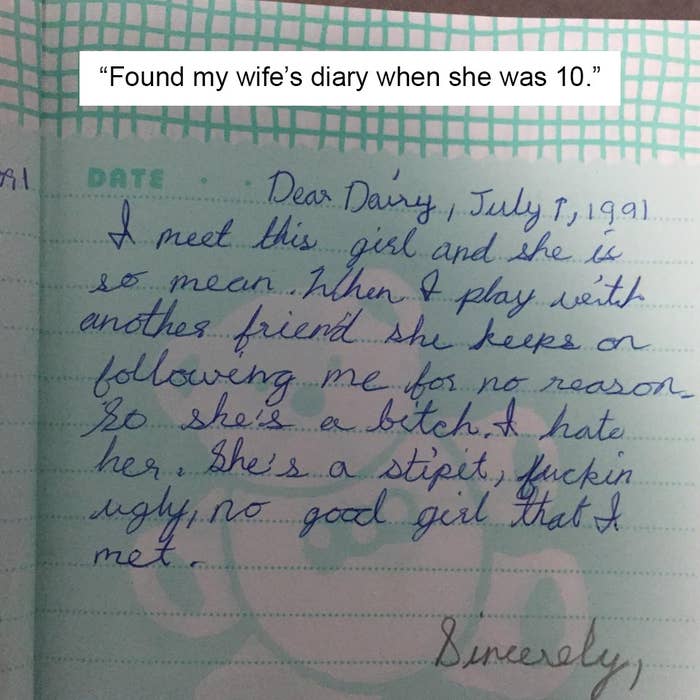 “Found my wife’s diary when she was 10.”
DATE
Dear Dairy, July 1, 1991
I meet this girl and she is
so mean. When I play with
another friend she keeps on
following me for no reason.
So she's a bitch. I hate
her. She's a stipit, fuckin
ugly, no good girl that I
met.
Sincerely,